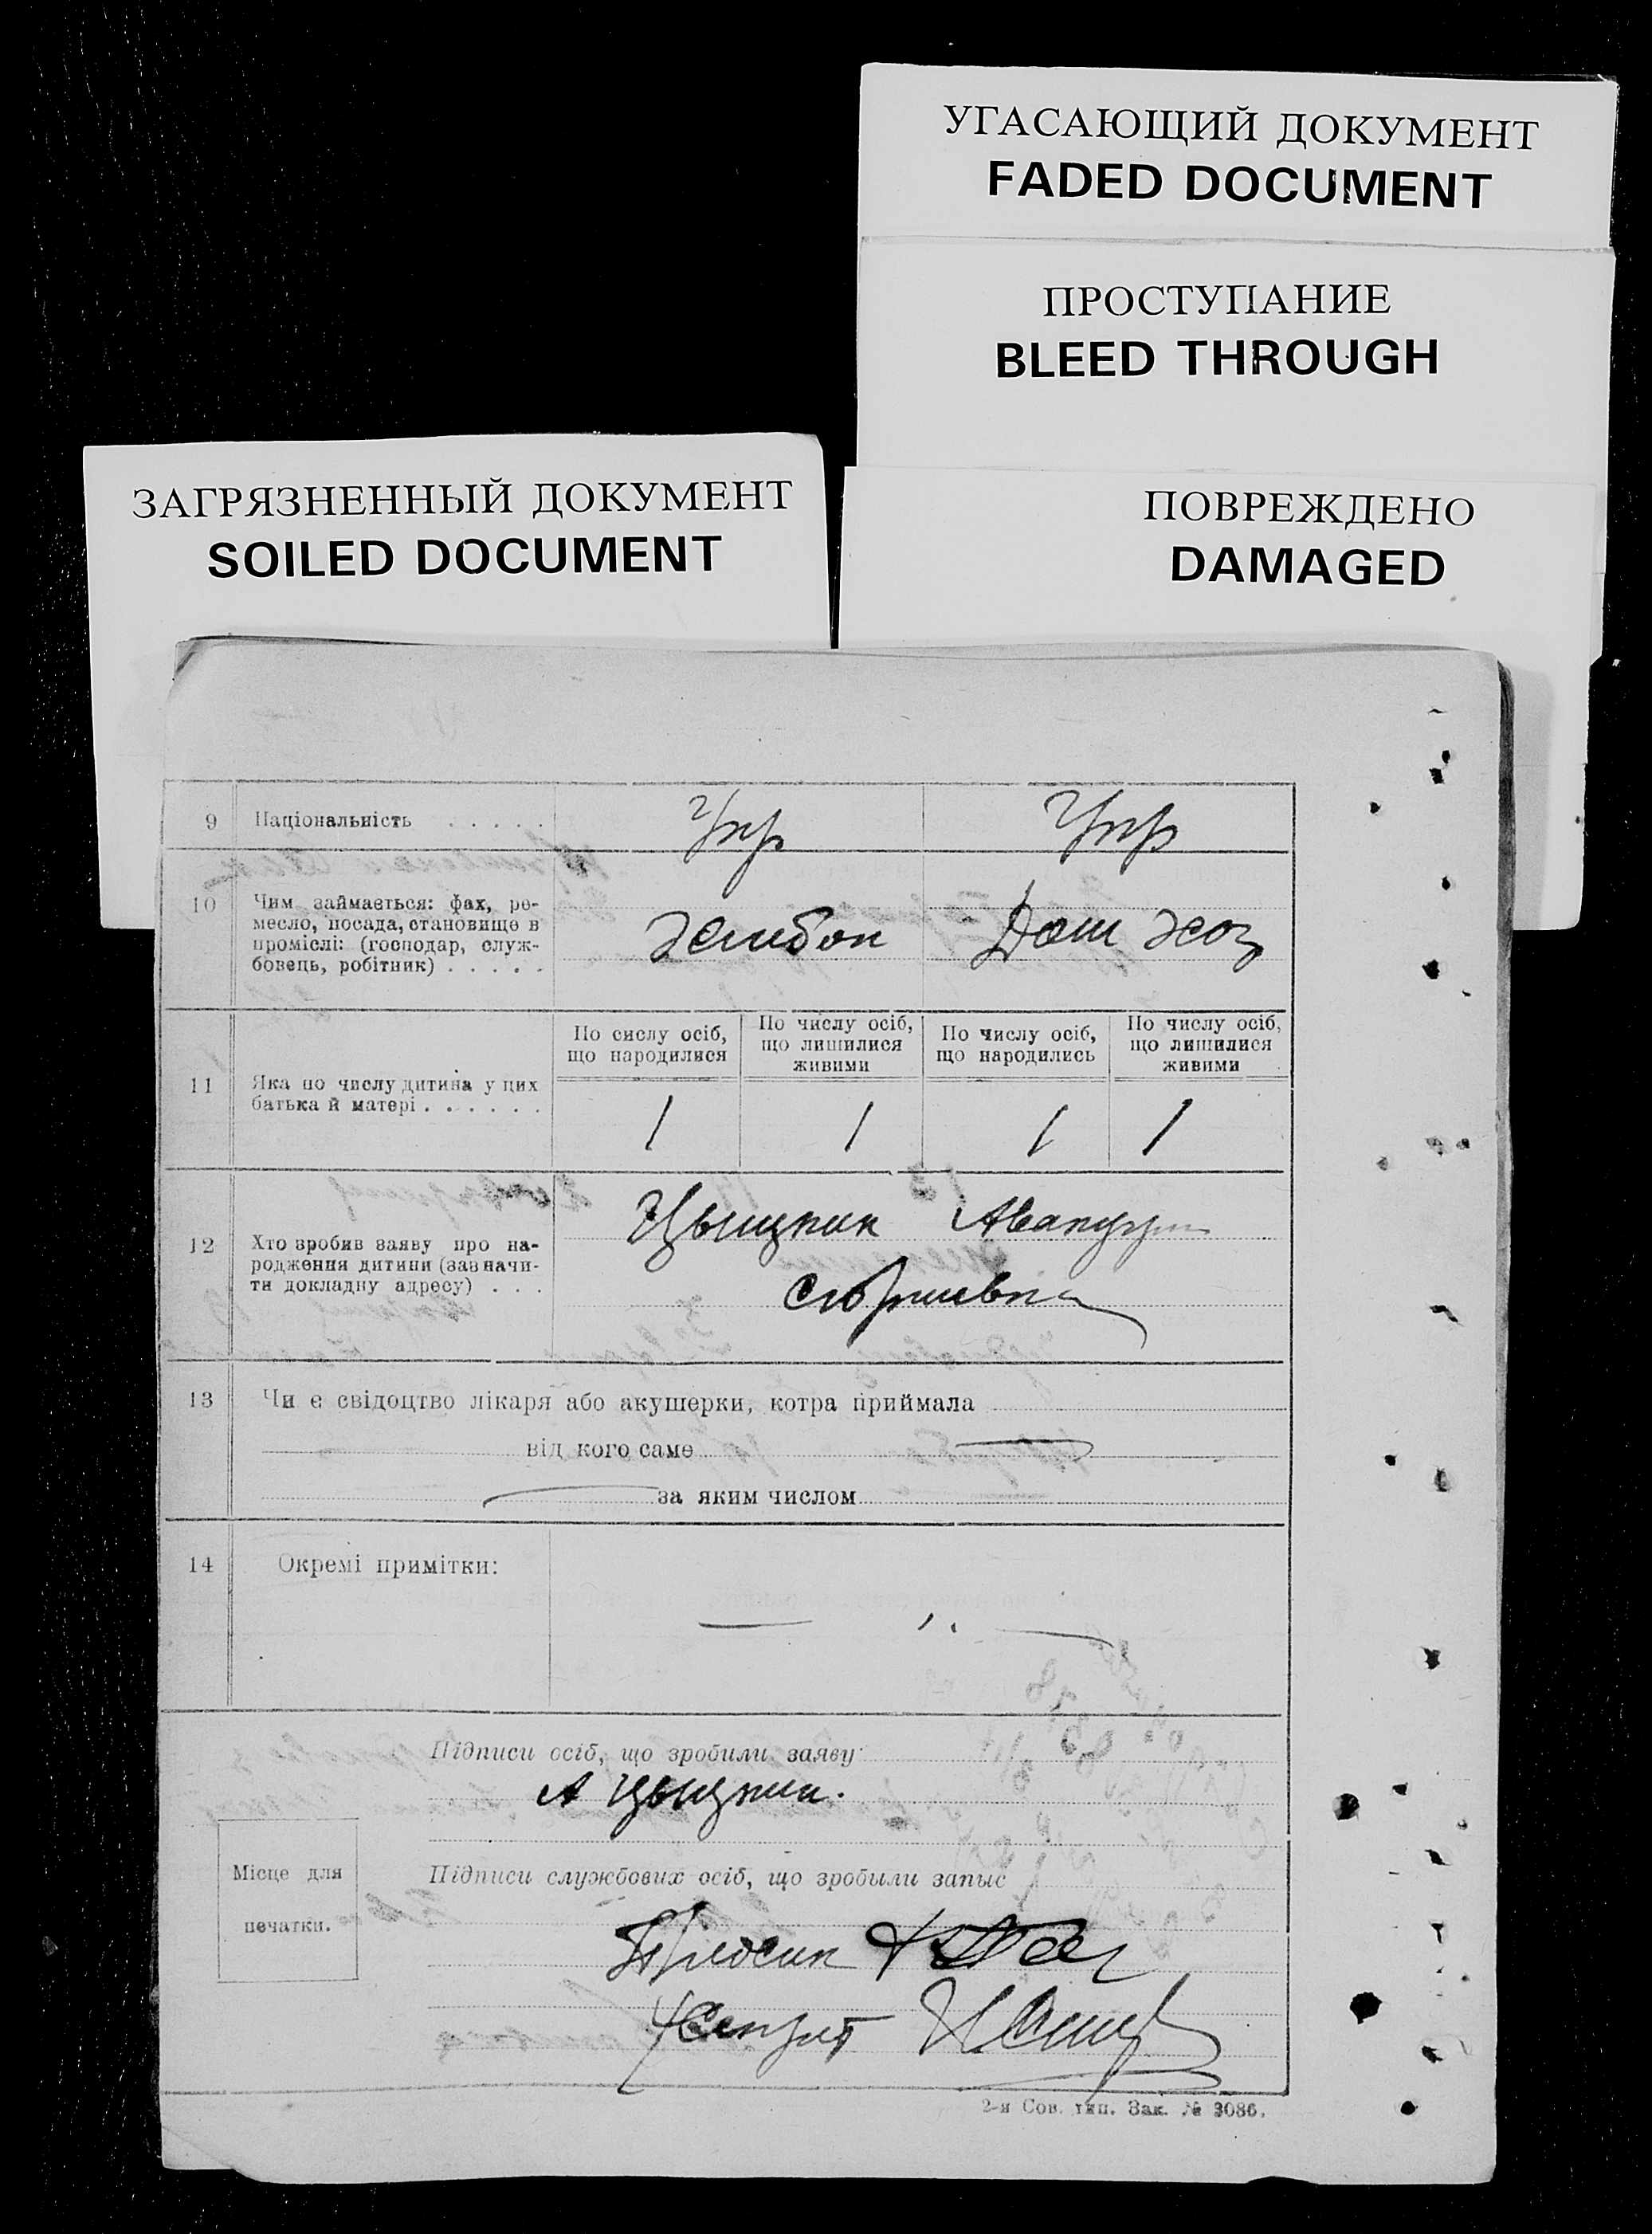 УГАСАЮЩИЙ ДОКУМЕНТ
FADED DOCUMENT
ПРОСТУПАНИЕ
BLEED THROUGH
ЗАГРЯЗНЕННЫЙ ДОКУМЕНТ
SOILED DOCUMENT
ПОВРЕЖДЕНО
DAMAGED
9 Національність . . . . . Укр Укр
10 Чим займається: фах, ре-
месло, посада, становище в
проміслі: (господар, служ-
бовець, робітник) . . . . .
Дом хоз
11 Яка по числу дитина у цих
батька й матері . . . . . .
По сислу осіб,
що народилися
По числу осіб,
що лишилися
живими
По числу осіб,
що народились
По числу осіб,
що лишилися
живими
1 1 1 1
12 Хто зробив заяву про на-
родження дитини (зазначи-
ти докладну адресу) . . .
13 Чи є свідоцтво лікаря або акушерки, котра приймала
від кого саме
за яким числом
14 Окремі примітки:
Підписи осіб, що зробили заяву
А
Місце для
печатки.
Підписи службових осіб, що зробыли запыс
2-я Сов. тип. Зак. № 3086.